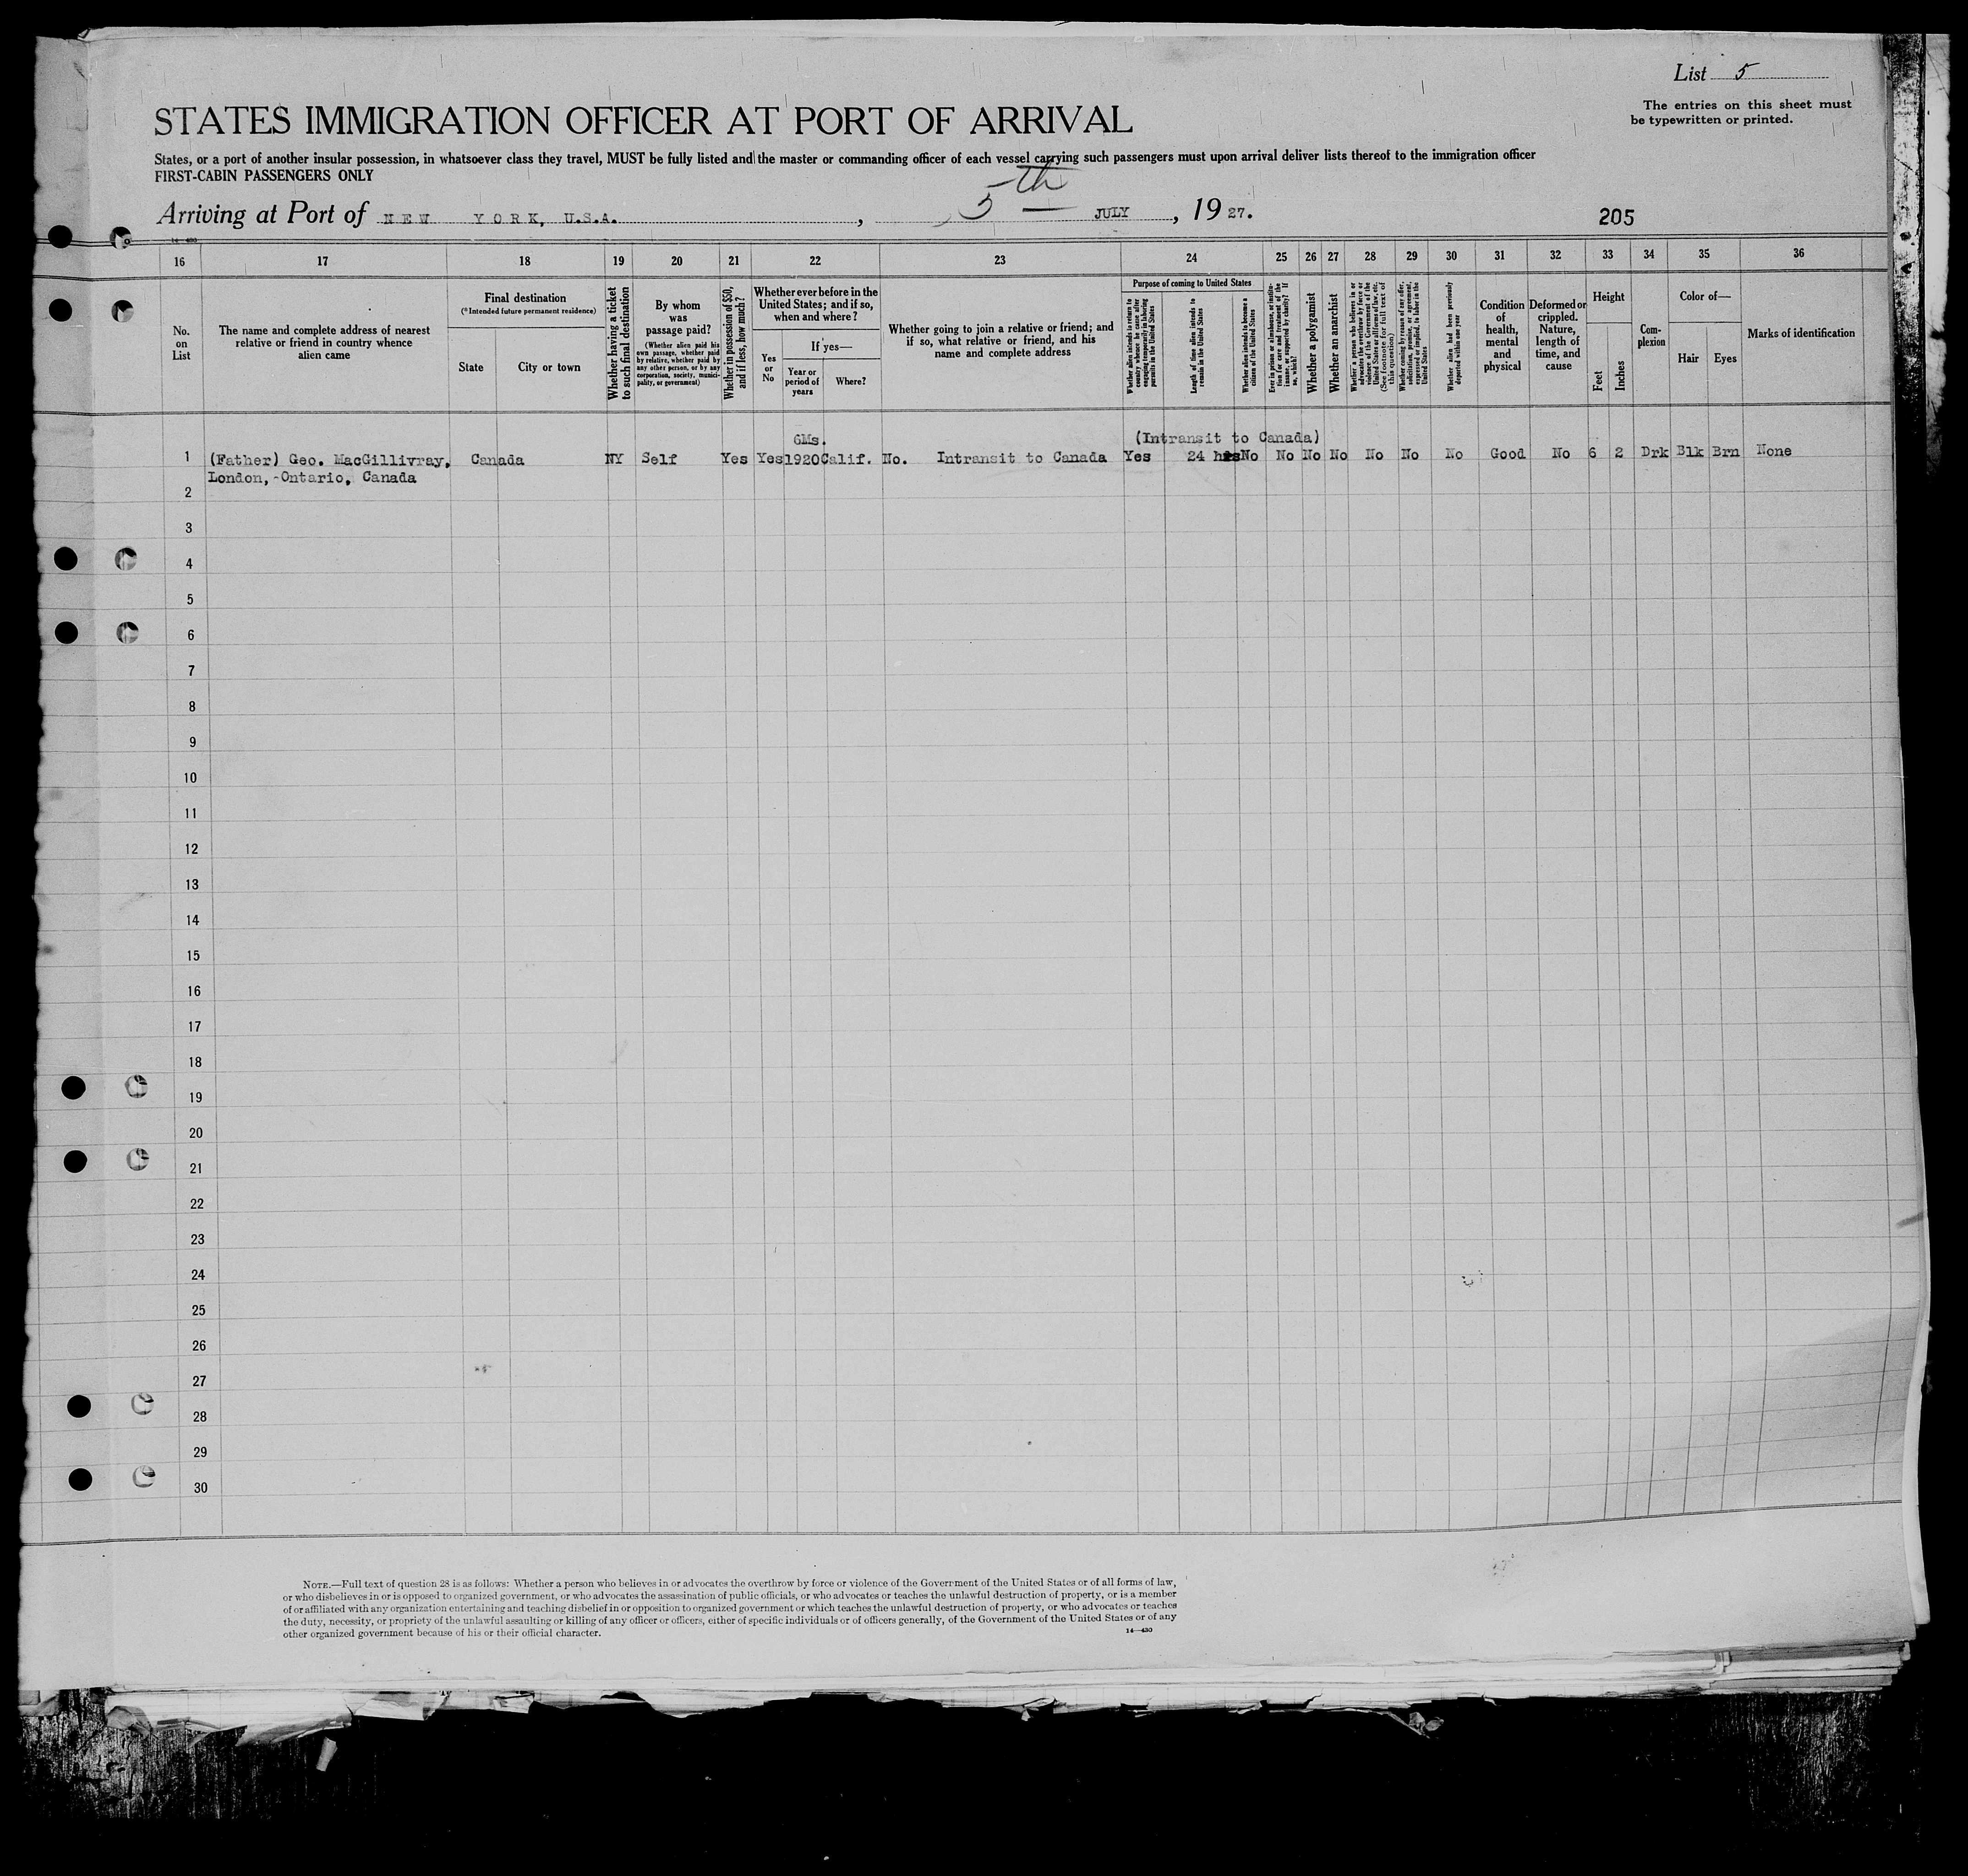 List 5
The entries on this sheet must
be typewritten or printed.
STATES IMMIGRATION OFFICER AT PORT OF ARRIVAL
States, or a port of another insular possession, in whatsoever class they travel, MUST be fully listed and the master or commanding officer of each vessel carrying such passengers must upon arrival deliver lists thereof to the immigration officer
FIRST-CABIN PASSENGERS ONLY
Arriving at Port of NEW YORK, U.S.A. , 5th JULY , 1927.
205
14—430
16 17 18 19 20 21 22 23 24 25 26 27 28 29 30 31 32 33 34 35 36
No. on List
The name and complete address of nearest relative or friend in country whence alien came
Final destination
(* Intended future permanent residence)
State
City or town
Whether having a ticket to such final destination
By whom was passage paid?
(Whether alien paid his own passage, whether paid by relative, whether paid by any other person, or by any corporation, society, municipality, or government)
Whether in possession of $50, and if less, how much?
Whether ever before in the United States; and if so, when and where?
Yes or No
If yes—
Year or period of years
Where?
Whether going to join a relative or friend; and if so, what relative or friend, and his name and complete address
Purpose of coming to United States
Whether alien intends to return to country whence he came after engaging temporarily in laboring pursuits in the United States
Length of time alien intends to remain in the United States
Whether alien intends to become a citizen of the United States
Ever in prison or almshouse, or institution for care and treatment of the insane, or supported by charity? If so, which?
Whether a polygamist
Whether an anarchist
Whether a person who believes in or advocates the overthrow by force or violence of the Government of the United States or all forms of law, etc. (See footnote for full text of this question)
Whether coming by reason of any offer, solicitation, promise, or agreement, expressed or implied, to labor in the United States
Whether alien had been previously deported within one year
Condition of health, mental and physical
Deformed or crippled. Nature, length of time, and cause
Height
Feet
Inches
Complexion
Color of—
Hair
Eyes
Marks of identification
6Ms.
(Intransit to Canada)
1 (Father) Geo. MacGillivray, Canada NY Self Yes Yes 1920 Calif. No. Intransit to Canada Yes 24 hrs No No No No No No No Good No 6 2 Drk Blk Brn None
London, -Ontario, Canada
2
3
4
5
6
7
8
9
10
11
12
13
14
15
16
17
18
19
20
21
22
23
24
25
26
27
28
29
30
NOTE.—Full text of question 28 is as follows: Whether a person who believes in or advocates the overthrow by force or violence of the Government of the United States or of all forms of law,
or who disbelieves in or is opposed to organized government, or who advocates the assassination of public officials, or who advocates or teaches the unlawful destruction of property, or is a member
of or affiliated with any organization entertaining and teaching disbelief in or opposition to organized government or which teaches the unlawful destruction of property, or who advocates or teaches
the duty, necessity, or propriety of the unlawful assaulting or killing of any officer or officers, either of specific individuals or of officers generally, of the Government of the United States or of any
other organized government because of his or their official character.
14—430